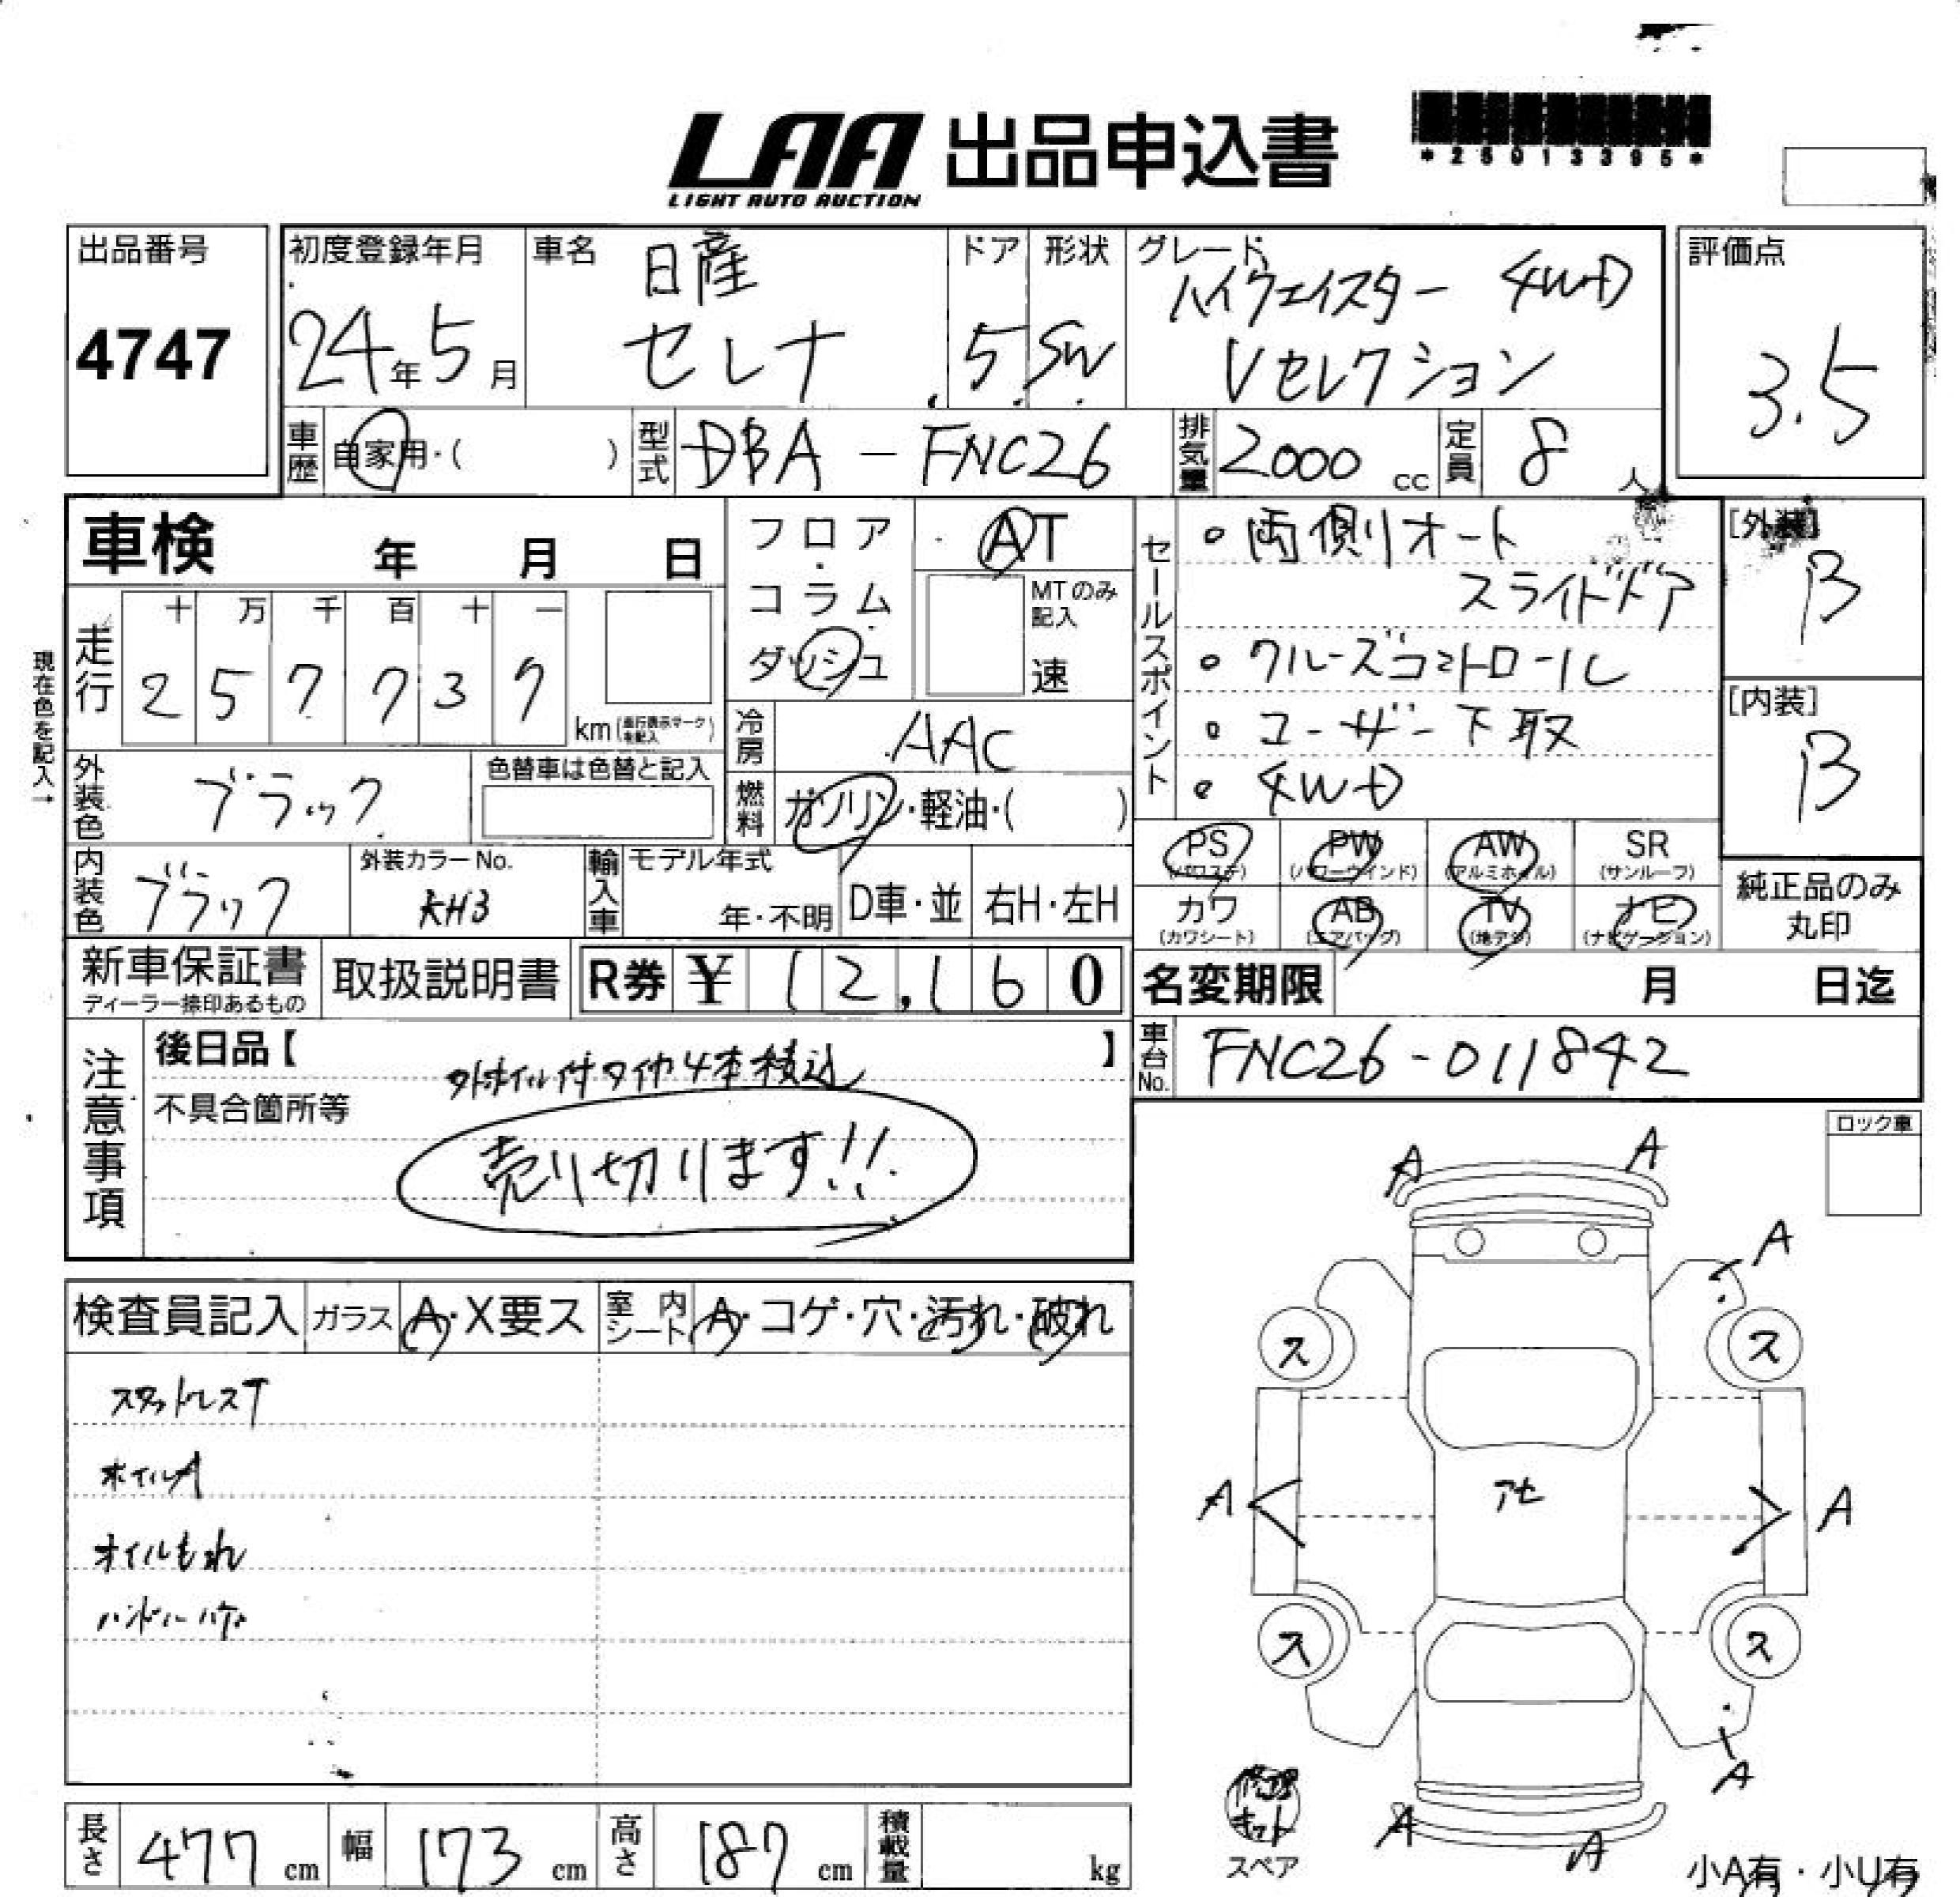 LAA 出品申込書
LIGHT AUTO AUCTION
*25013395*
出品番号
4747
初度登録年月
24年5月
車名
日産
セレナ
ドア
5
形状
SW
グレード
ハイウェイスター 4WD
Vセレクション
評価点
3.5
車歴
自家用・( )
型式
DBA-FNC26
排気量
2000 cc
定員
8人
車検 年 月 日
フロア・
コラム
ダッシュ
AT
MTのみ
記入
速
走行
十 万 千 百 十 一
2 5 7 7 3 7
km(走行表示マークを記入)
現在色を記入→
冷房
AAC
外装色
ブラック
色替車は色替と記入
燃料
ガソリン・軽油・( )
内装色
ブラック
外装カラーNo.
KH3
輸入車
モデル年式
年・不明
D車・並
右H・左H
セールスポイント
・両側オート
スライドドア
・クルーズコントロール
・ユーザー下取
・4WD
[外装]
B
[内装]
B
PS
(パワステ)
PW
(パワーウィンド)
AW
(アルミホイル)
SR
(サンルーフ)
カワ
(カワシート)
AB
(エアバッグ)
TV
(地デジ)
ナビ
(ナビゲーション)
純正品のみ
丸印
新車保証書
ディーラー捺印あるもの
取扱説明書
R券 ¥ 12,160
名変期限 月 日迄
車台No.
FNC26-011842
注意事項
後日品【 】
外ホイル付タイヤ4本積込
不具合箇所等
売り切ります!!
ロック車
検査員記入
ガラス
A・X要ス
室内シート
A・コゲ・穴・汚れ・破れ
スタッドレスT
ホイルA
オイルもれ
A A
A
ス ス
A A
アセ
ス ス
A
A A
修理
キット
スペア
小A有・小U有
長さ
477 cm
幅
173 cm
高さ
187 cm
積載量
kg